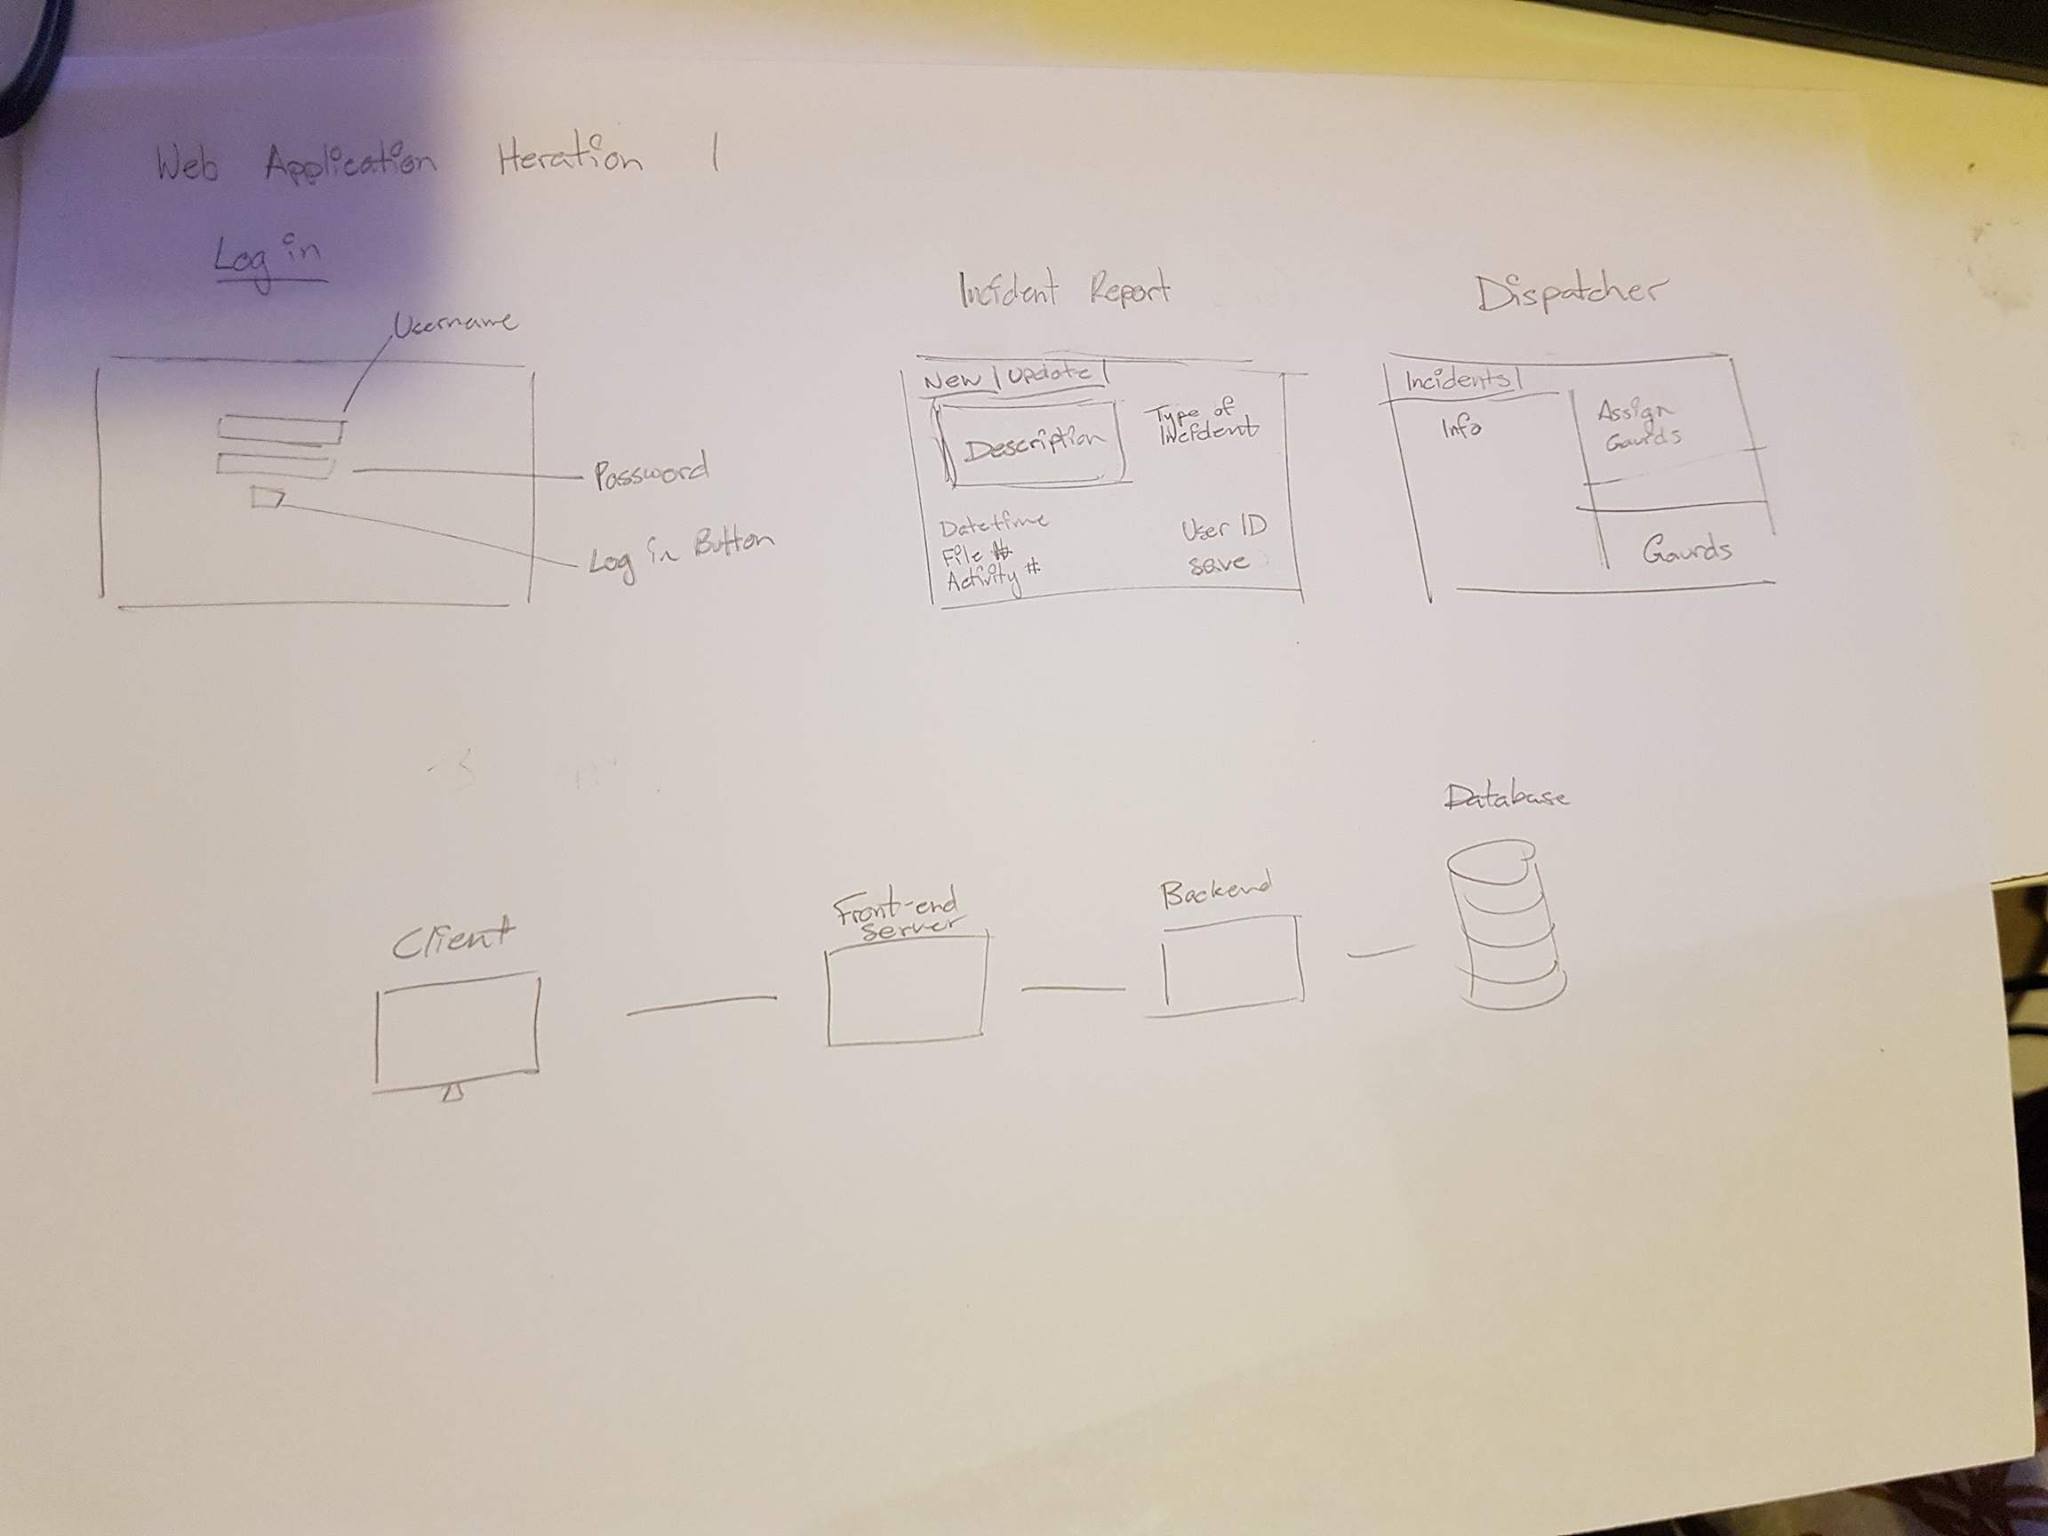 Web Application Iteration 1
Log in
Username
Password
Log in Button
Incident Report
New | Update |
Description
Type of
Incident
Datetime
File #
Activity #
User ID
save
Dispatcher
Incidents |
Info
Assign
Gaurds
Gaurds
Client
Front-end
Server
Backend
Database